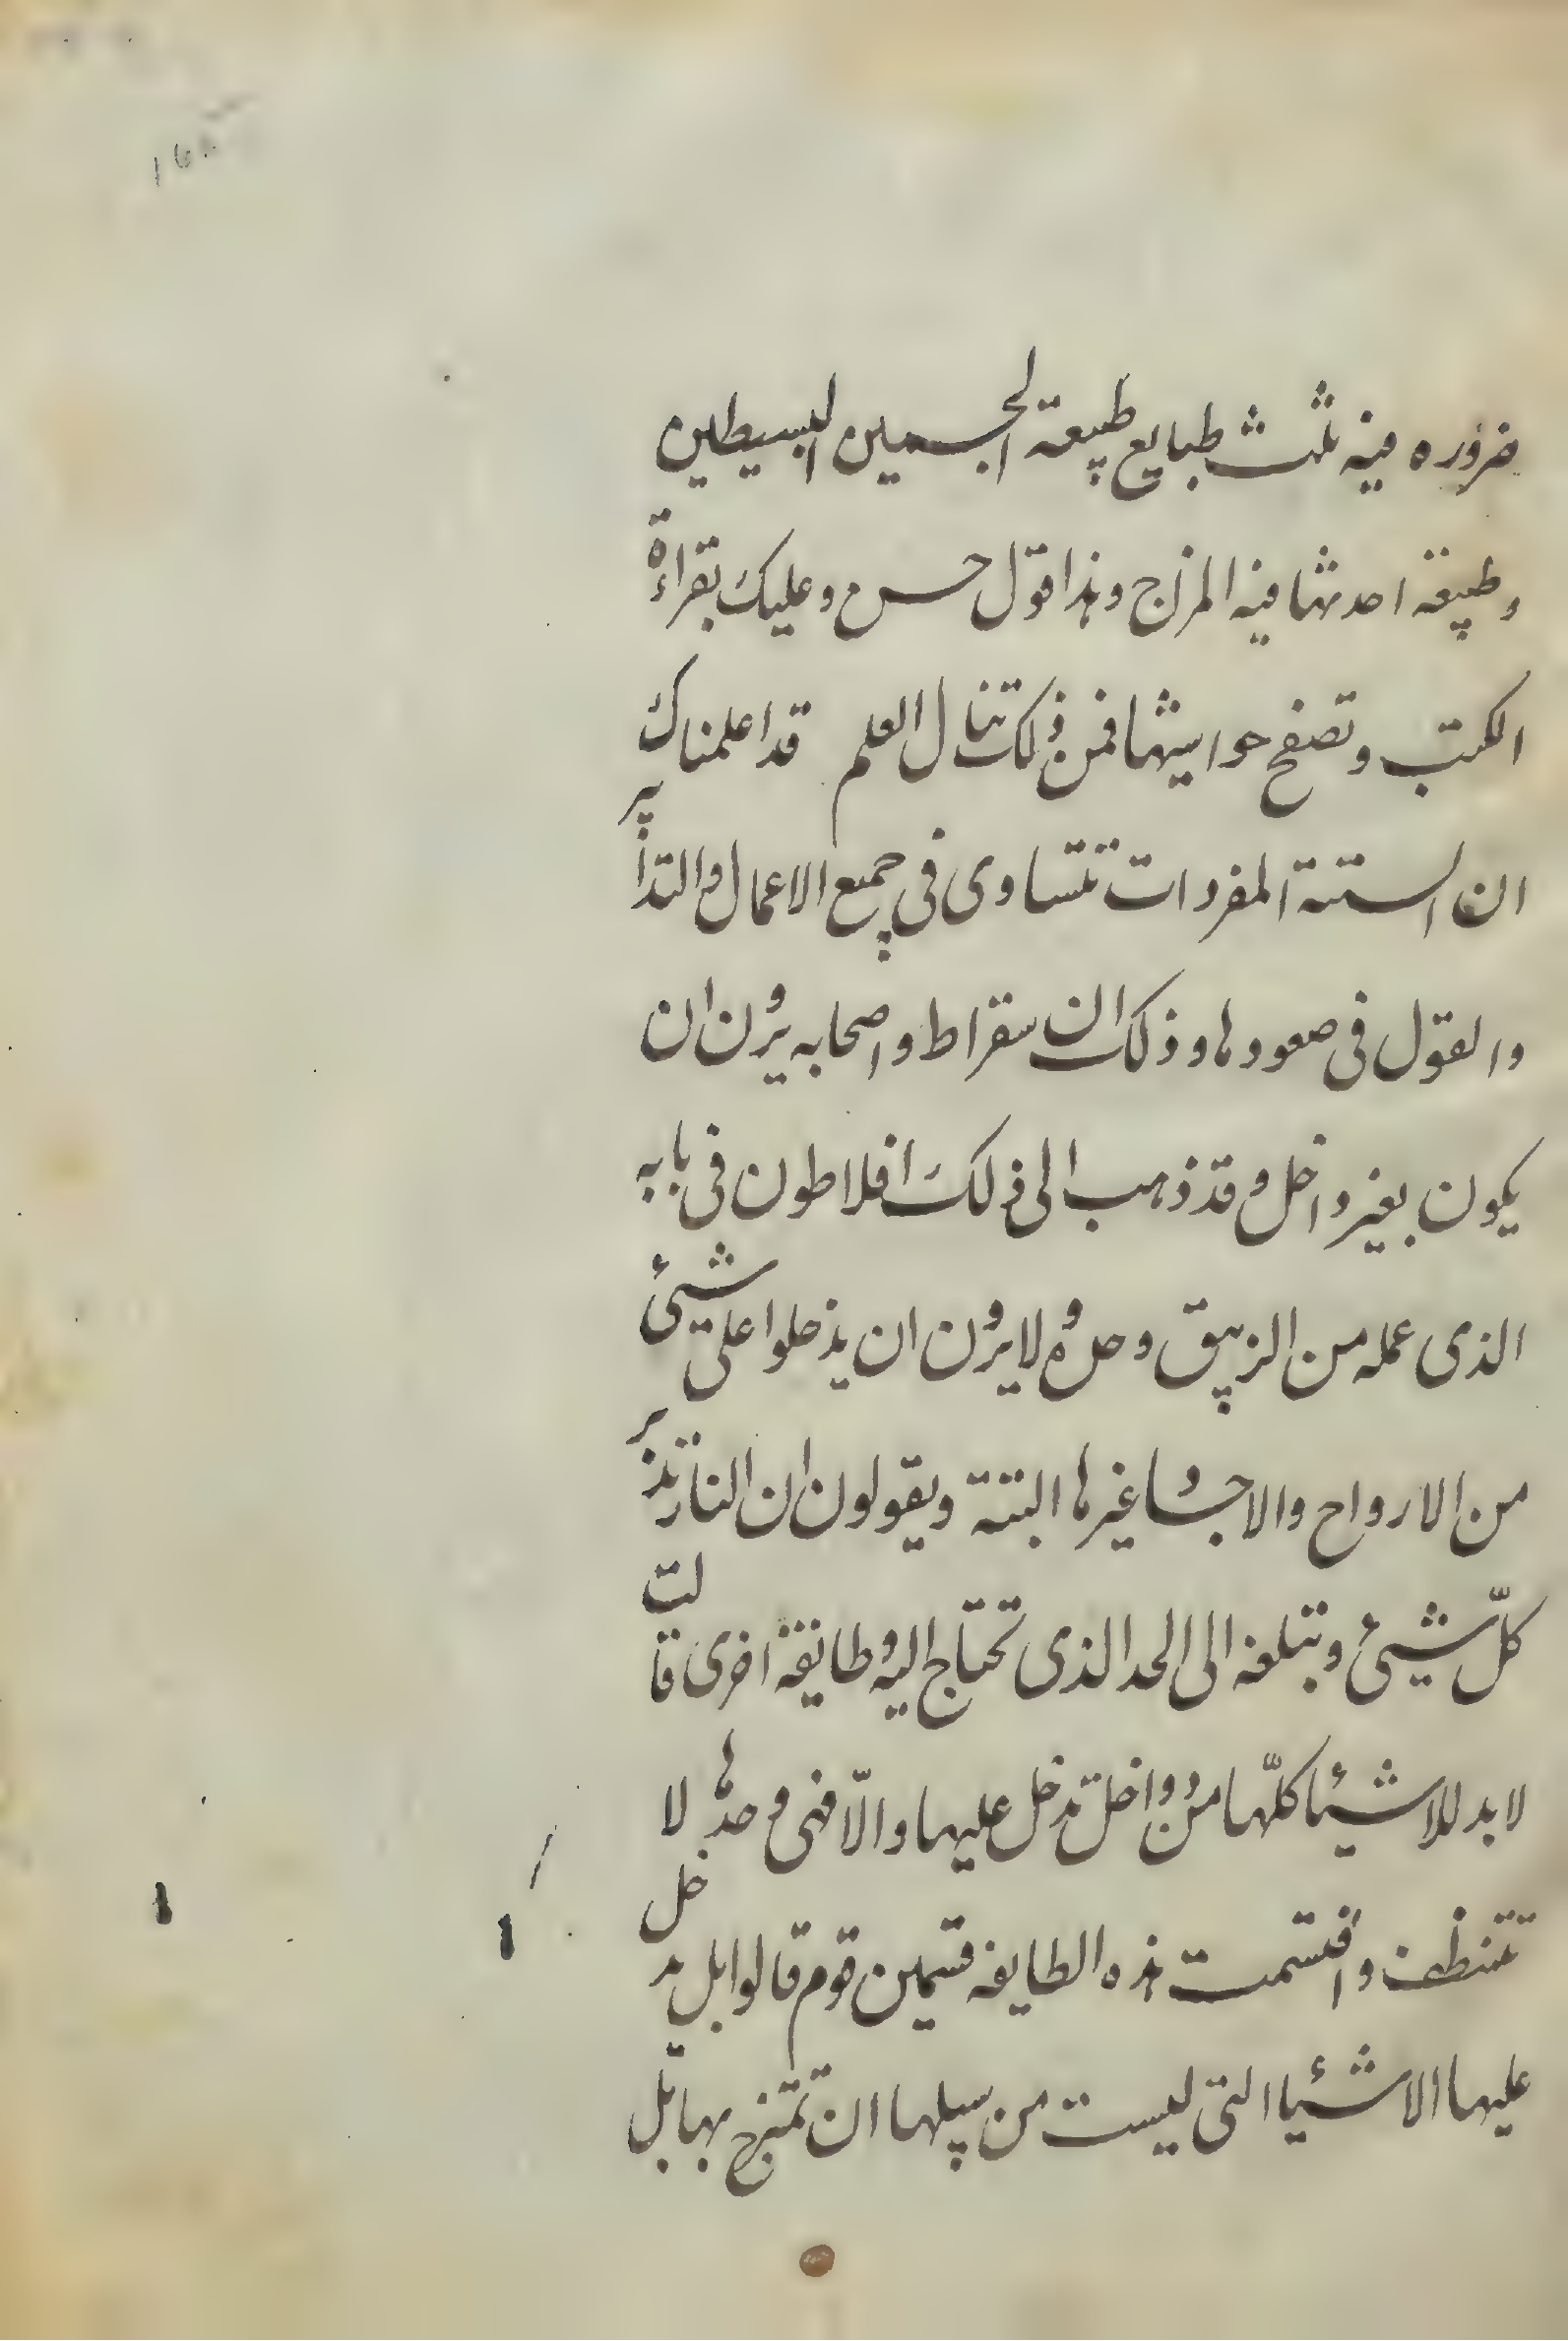 ضروره فيه ثلث طبايع طبيعة الجسمين البسيطين
وطبيعة احدثها فيه المزاج وهذا قول حسن وعليك بقراءة
الكتب وتصفح حواشيها فمن ذلك تنال العلم قد اعلمناك
ان الستة المفردات تتساوى فى جميع الاعمال والتدابير
والقول فى صعودها وذلك ان سقراط واصحابه يرون ان
يكون بغير داخل وقد ذهب الى ذلك افلاطون فى بابه
الذى عمله من الزيبق وحده لا يرون ان يدخلوا على شيئ
من الارواح والاجساد غيرها البتة ويقولون ان النار تدبر
كلّ شيئ وتبلغه الى الحد الذى تحتاج اليه وطايفة اخرى قالت
لا بد للاشيئا كلّها من دواخل تدخل عليها والّا فهى وحدها لا
تتنظف وافتسمت هذه الطايفه قسمين قوم قالوا بل يدخل
عليها الاشئيا التى ليست من سبيلها ان تمتزج بها بل